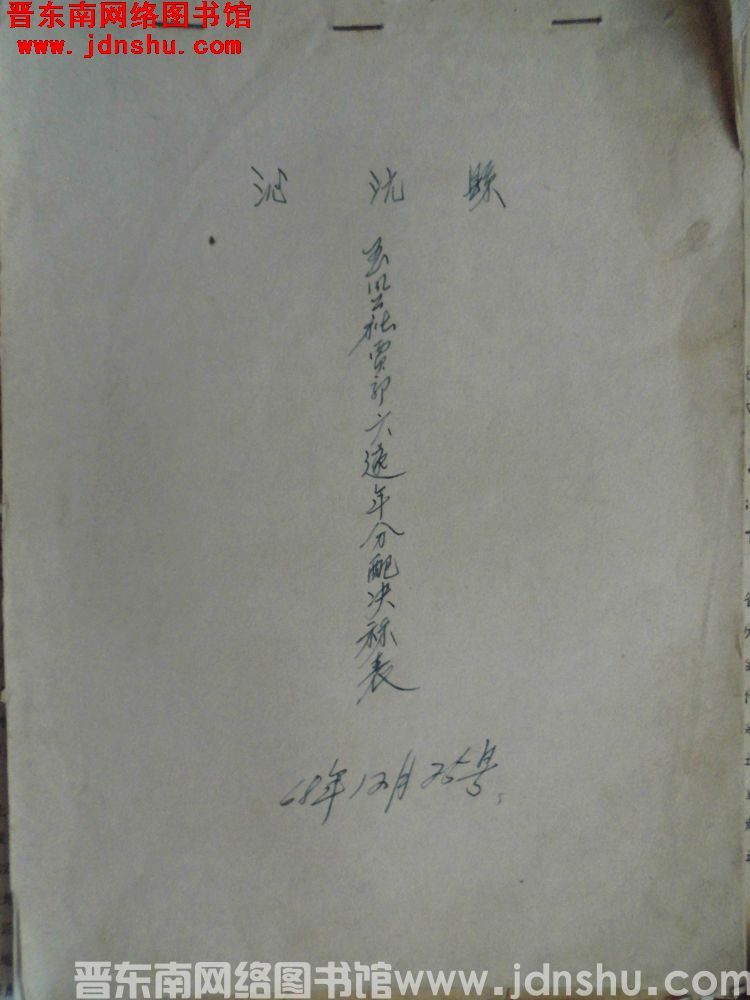 晋东南网络图书馆
www.jdnshu.com
沁 沅 縣
公社贾郭六 年分配决 表
68年12月25号
晋东南网络图书馆www.jdnshu.com